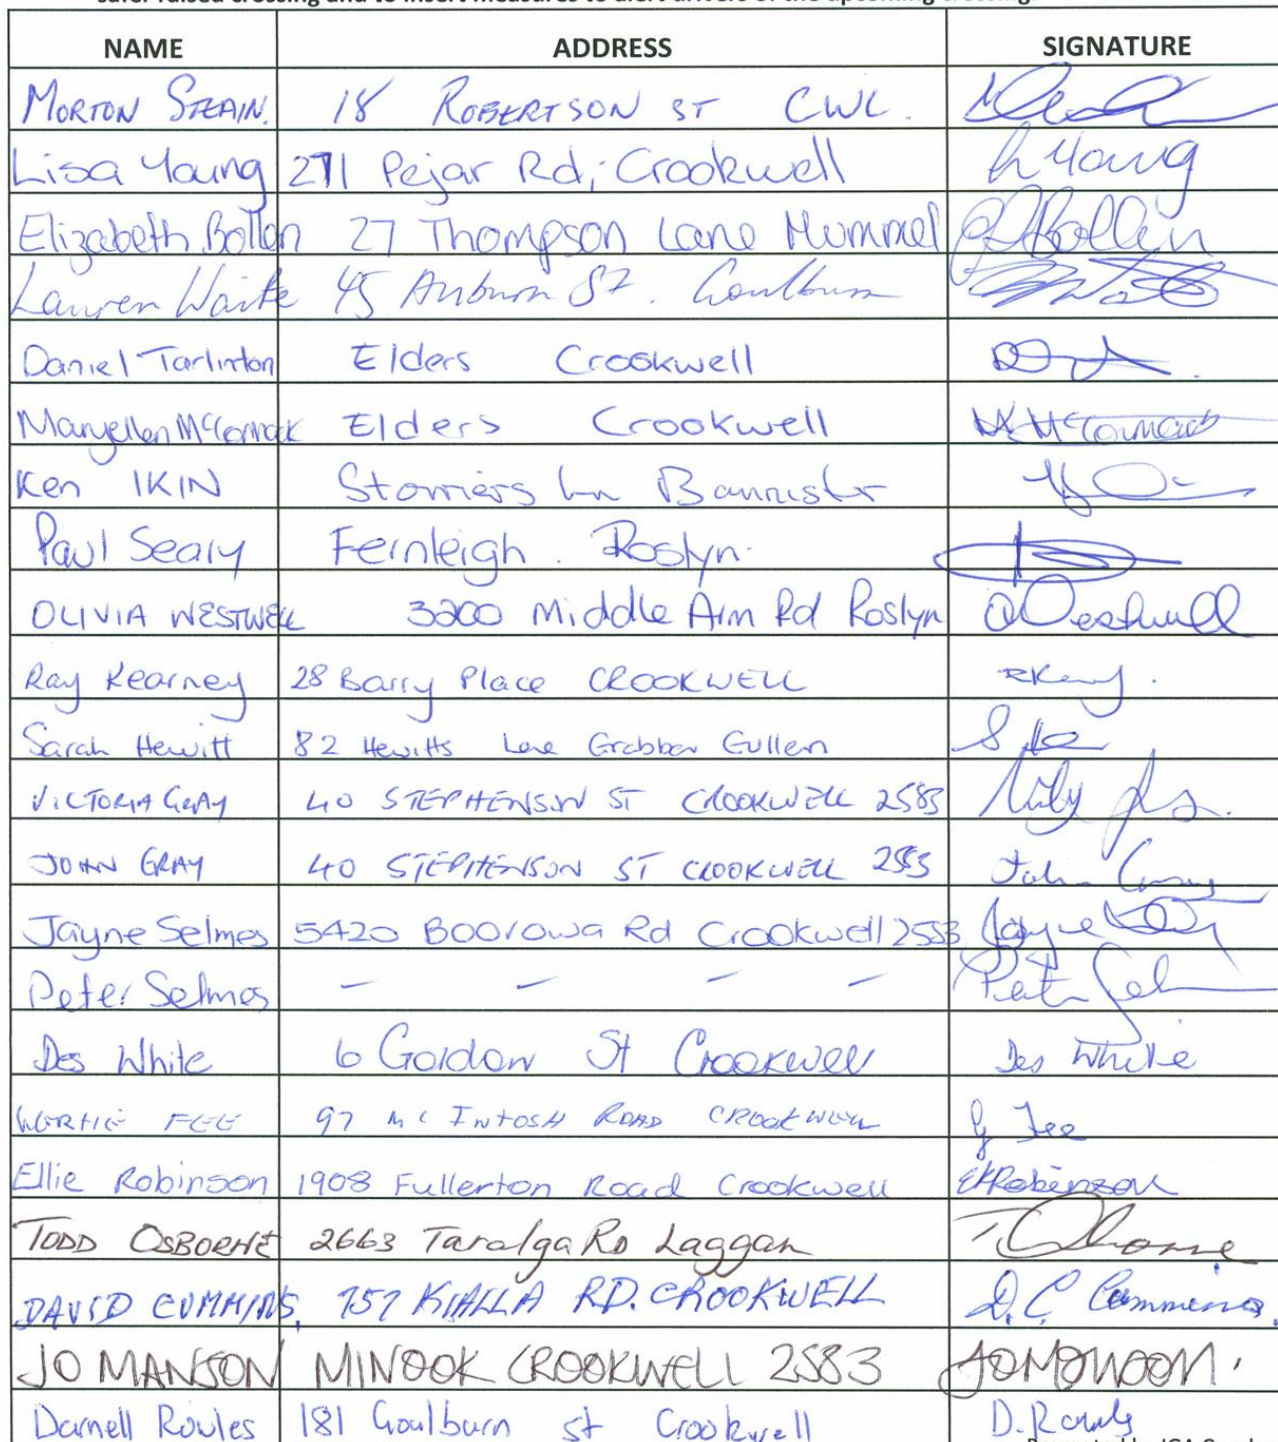 safer raised crossing and to insert measures to alert drivers of the upcoming crossing.
NAME ADDRESS SIGNATURE
MORTON STRAIN. 18 ROBERTSON ST CWL.
Lisa Young 271 Pejar Rd, Crookwell L Young
Elizabeth Bollen 27 Thompson Lane Mummel Bollen
Lauren Waite 45 Auburn St. Goulburn
Daniel Tarlinton Elders Crookwell
Maryellen McCormack Elders Crookwell M McCormack
Ken IKIN Storriers Ln Bannister
Paul Seary Fernleigh. Roslyn.
OLIVIA WESTWELL 3200 Middle Arm Rd Roslyn O Westwell
Ray Kearney 28 Barry Place CROOKWELL
Sarah Hewitt 82 Hewitts Lane Grabben Gullen
VICTORIA GRAY 40 STEPHENSON ST CROOKWELL 2583
JOHN GRAY 40 STEPHENSON ST CROOKWELL 2583 John Gray
Jayne Selmes 5420 Boorowa Rd Crookwell 2583 Jayne
Peter Selmes - - - - Peter Selm
Des White 6 Gordon St Crookwell Des White
FEE 97 Mc INTOSH ROAD CROOKWELL G Fee
Ellie Robinson 1908 Fullerton Road Crookwell Robinson
TODD OSBORNE 2663 Taralga RD Laggan T Osborne
DAVID CUMMINS, 757 KIALLA RD. CROOKWELL D.C Cummins.
JO MANSON MINOOK CROOKWELL 2583
Darnell Rowles 181 Goulburn st Crookwell D. Rowls